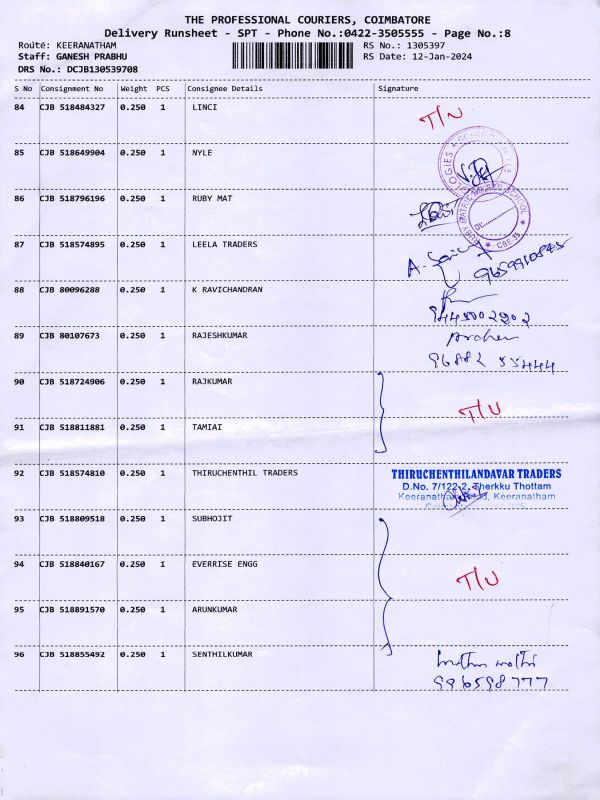 THE PROFESSIONAL COURIERS, COIMBATORE
Delivery Runsheet - SPT - Phone No.:0422-3505555 - Page No.:8
Route: KEERANATHAM RS No.: 1305397
Staff: GANESH PRABHU RS Date: 12-Jan-2024
DRS No.: DCJB130539708
S No Consignment No Weight PCS Consignee Details Signature
84 CJB 518484327 0.250 1 LINCI
T/N
85 CJB 518649904 0.250 1 NYLE
86 CJB 518796196 0.250 1 RUBY MAT
87 CJB 518574895 0.250 1 LEELA TRADERS
88 CJB 80096288 0.250 1 K RAVICHANDRAN
89 CJB 80107673 0.250 1 RAJESHKUMAR
96882 55444
90 CJB 518724906 0.250 1 RAJKUMAR
T/U
91 CJB 518811881 0.250 1 TAMIAI
92 CJB 518574810 0.250 1 THIRUCHENTHIL TRADERS
THIRUCHENTHILANDAVAR TRADERS
D.No. 7/122-2, Therkku Thottam
Keeranatham Road, Keeranatham
93 CJB 518809518 0.250 1 SUBHOJIT
94 CJB 518840167 0.250 1 EVERRISE ENGG
T/U
95 CJB 518891570 0.250 1 ARUNKUMAR
96 CJB 518855492 0.250 1 SENTHILKUMAR
986598777